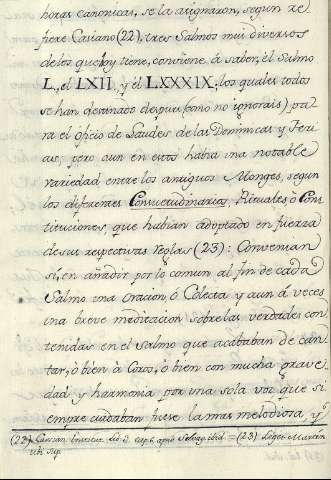 horas canonicas, se la asignaron, segun re
fiere Casiano (22), tres Salmos mui diversos
de los que hoy tiene, conviene à saber, el Salmo
L, el LXII, y el LXXXIX, los quales todos
se han destinado despues (como no ignorais) pa
ra el oficio de Laudes de las Dominicas y Feri
as; pero aun en estos habia una notable
variedad entre los antiguos Monges, segun
los diferentes Consuetudinarios, Rituales ò Cons
tituciones, que habian adoptado en fuerza
de sus respectivas reglas (23): Convenian
si, en añadir por lo comun al fin de cada
Salmo una Oracion, ò Colecta y aun à veces
una breve meditacion sobre las verdades con
tenidas en el Salmo que acababan de can
tar, ò bien à Coros, ò bien con mucha grave
dad y harmonia por una sola voz que si
empre cuidaban fuese la mas melodiosa, y
(22) Cassian. Lib. 3. cap. 4. apud ibid. = (23)
ubi sup.